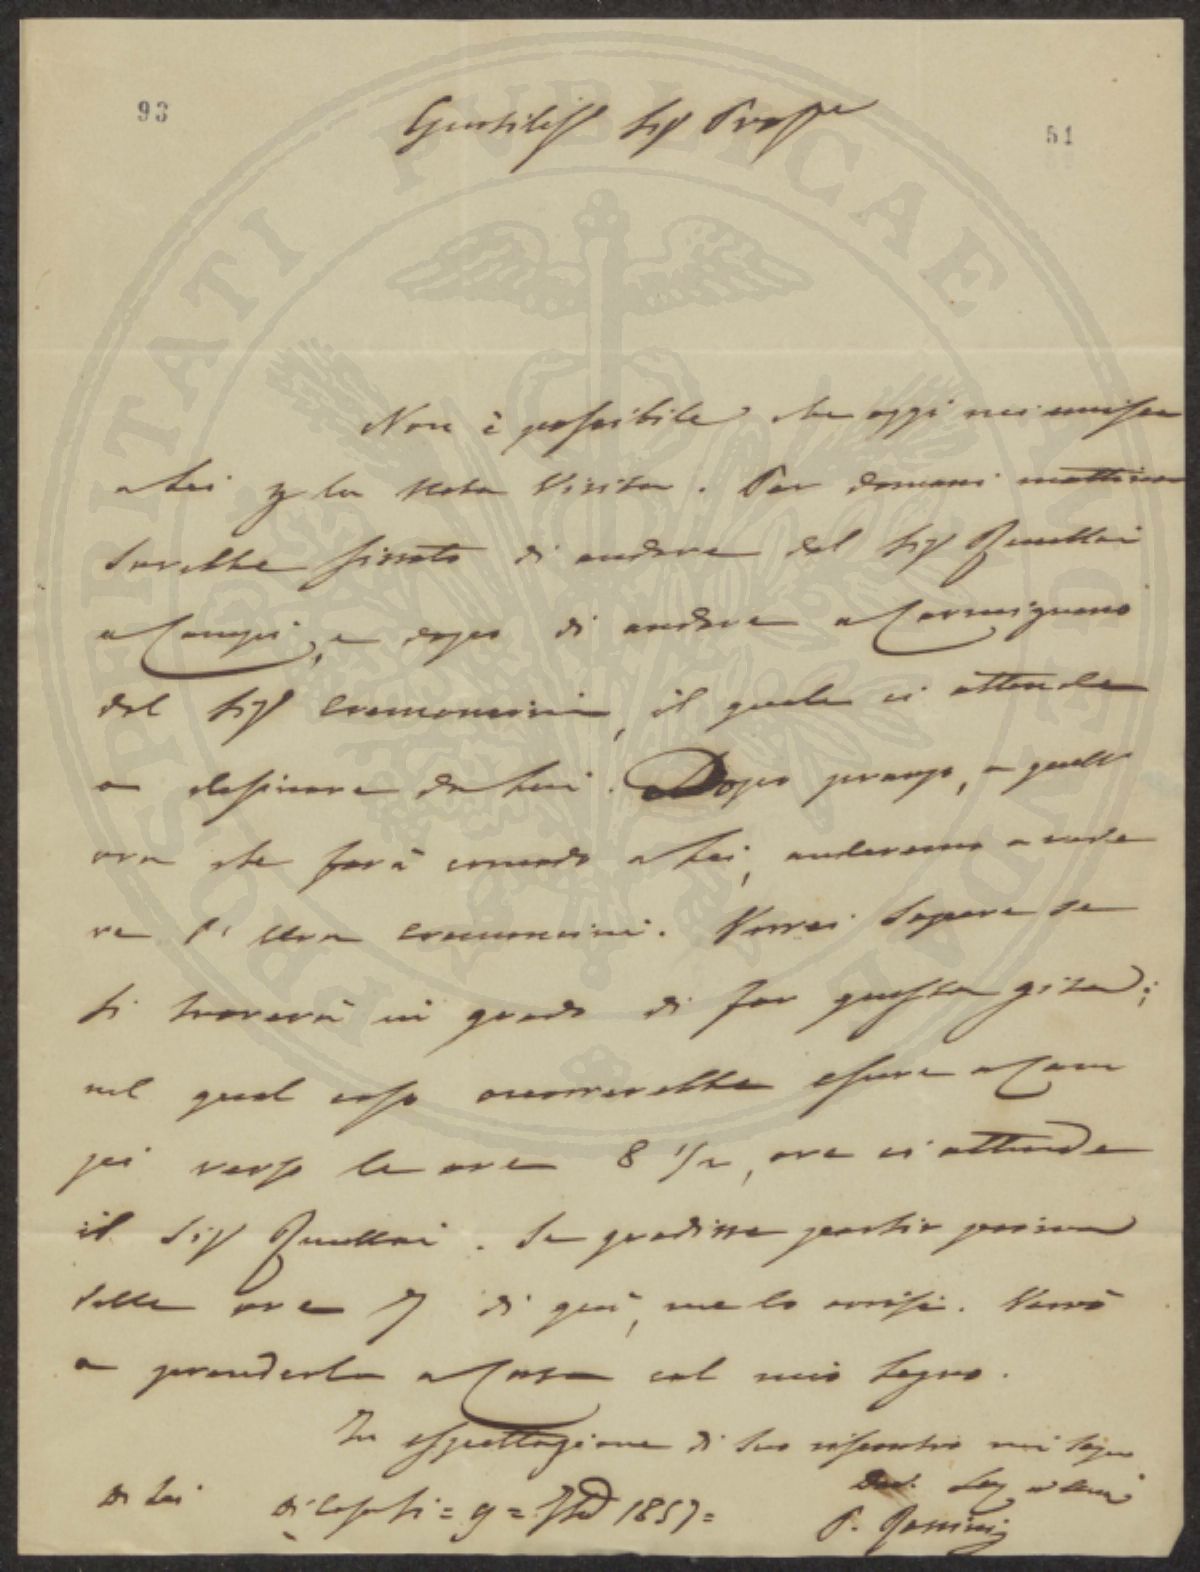 93
51
Gentiliss Sig Profre
Non è possibile che oggi mi unisca
a Lei p la nota Visita. Per domani mattina
sarebbe fissato di andare dal Sig Rucellai
a Campi, e dopo di andare a Carmignano
dal Sig Cremoncini, il quale ci attende
a desinare da Lui. Dopo pranzo, a quell
ora che farà comodo a Lei, anderemo a vede
re l' Uva Cremoncini. Vorrei sapere se
si troverà in grado di far questa gita;
nel qual caso occorrerebbe essere a Cam
pi verso le ore 8 1/2, ove ci attende
il Sig Rucellai. Se gradisse partir prima
delle ore 7 di quì, me lo avvisi. Verrò
a prenderla a Casa col mio legno.
In espettazione di suo riscontro mi segno
Di Lei di Casa li = 9 = 7bre 1857 =
P.